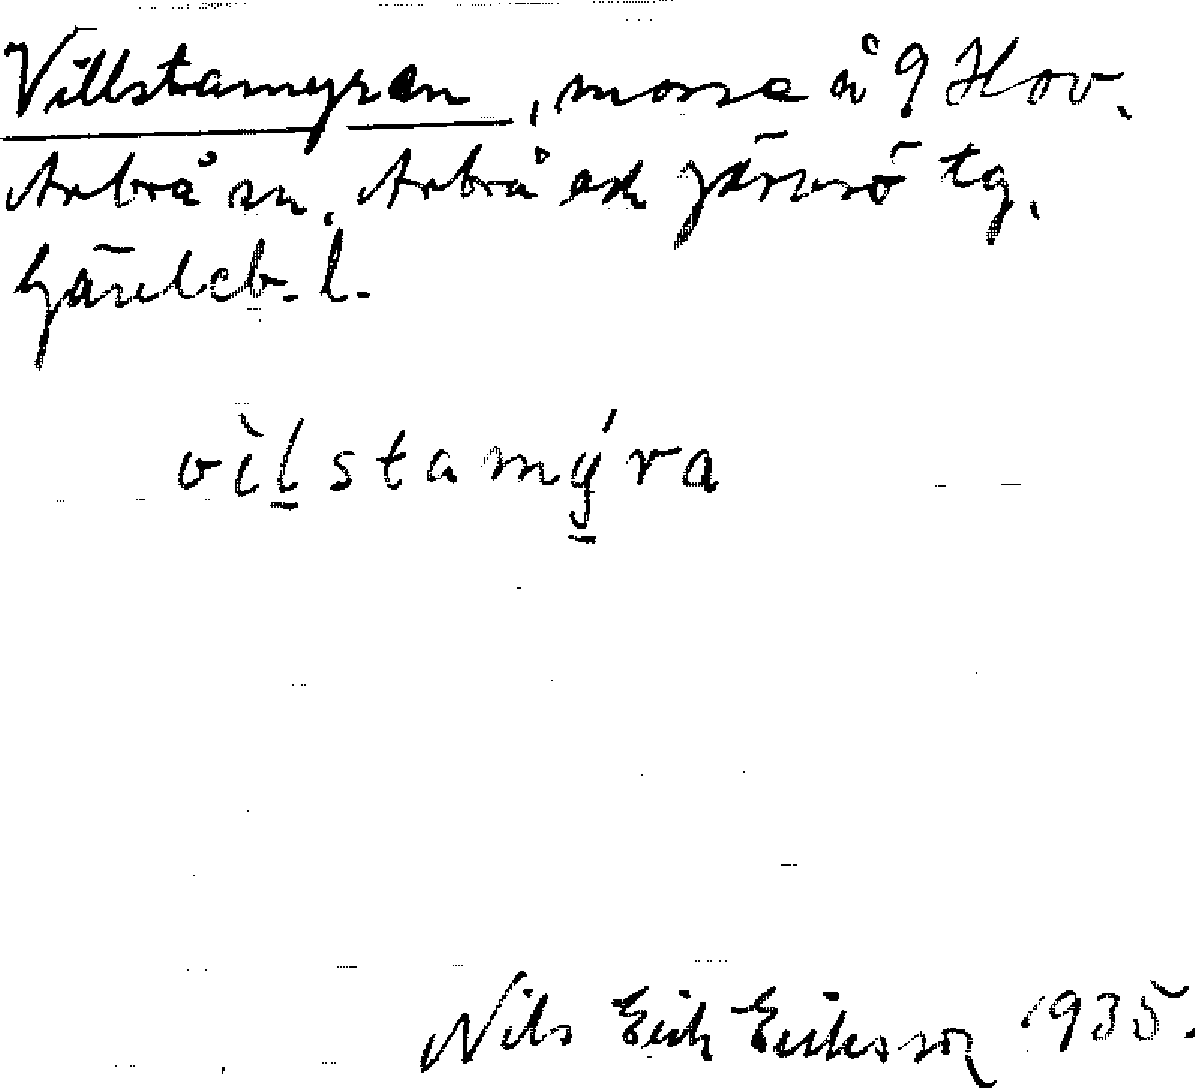 Villstamyran, mosse å 9 Hov.
Arbrå sn, Arbrå och Järvsö tg,
Gävleb. l.
vìlstamýra
Nils Erik Eriksson 1935.